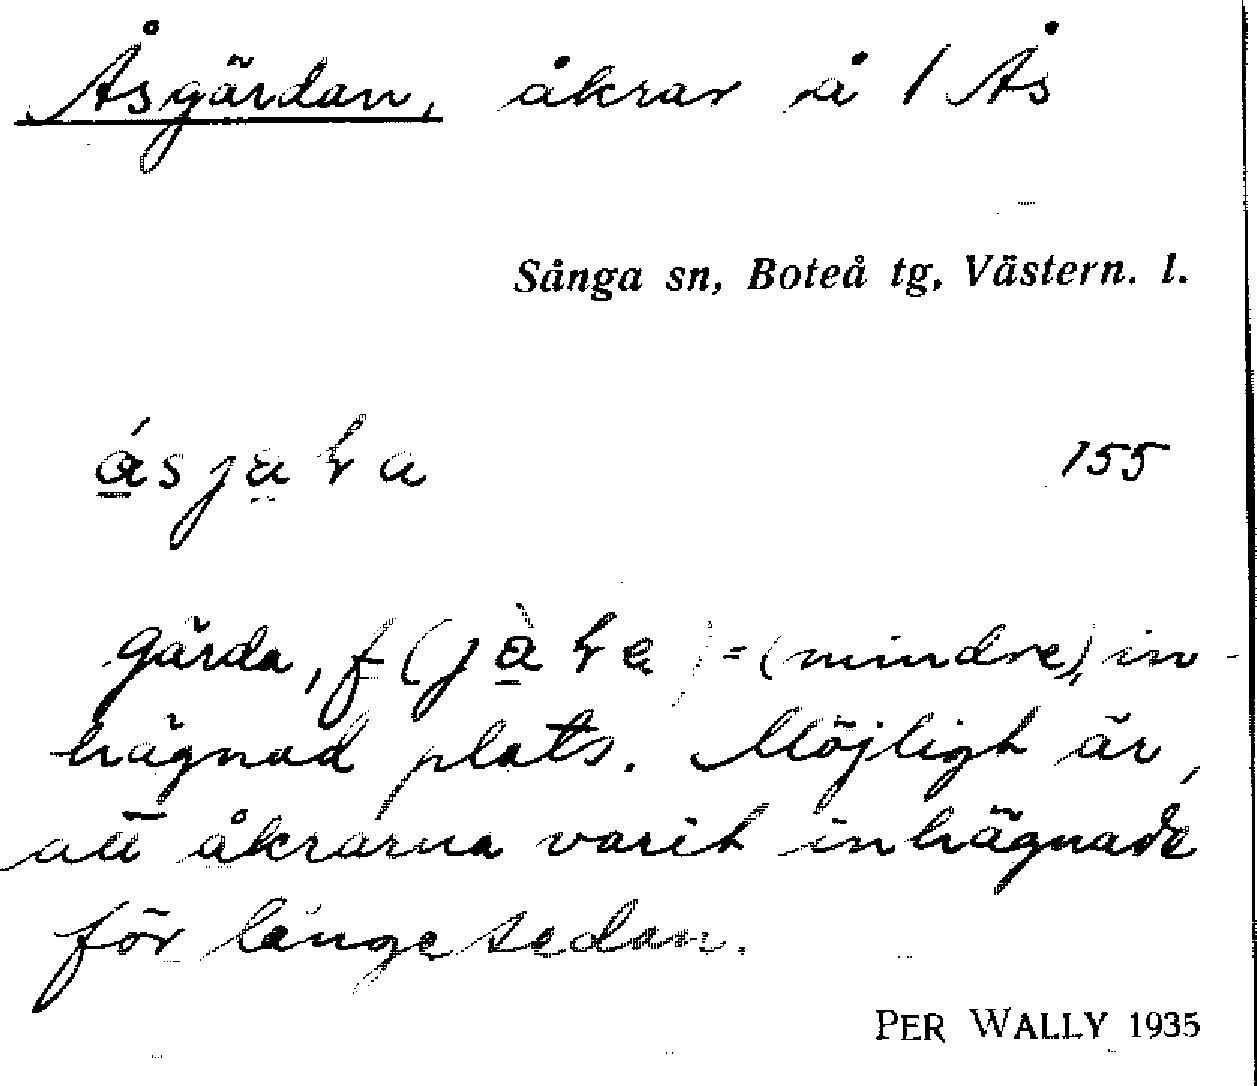 Åsgärdan, åkrar å 1 Ås
Sånga sn, Boteå tg, Västern. l.
155
gärda, f = (mindre) in-
hägnad plats. Möjligt är,
att åkrarna varit inhägnade
för länge sedan.
PER WALLY 1935